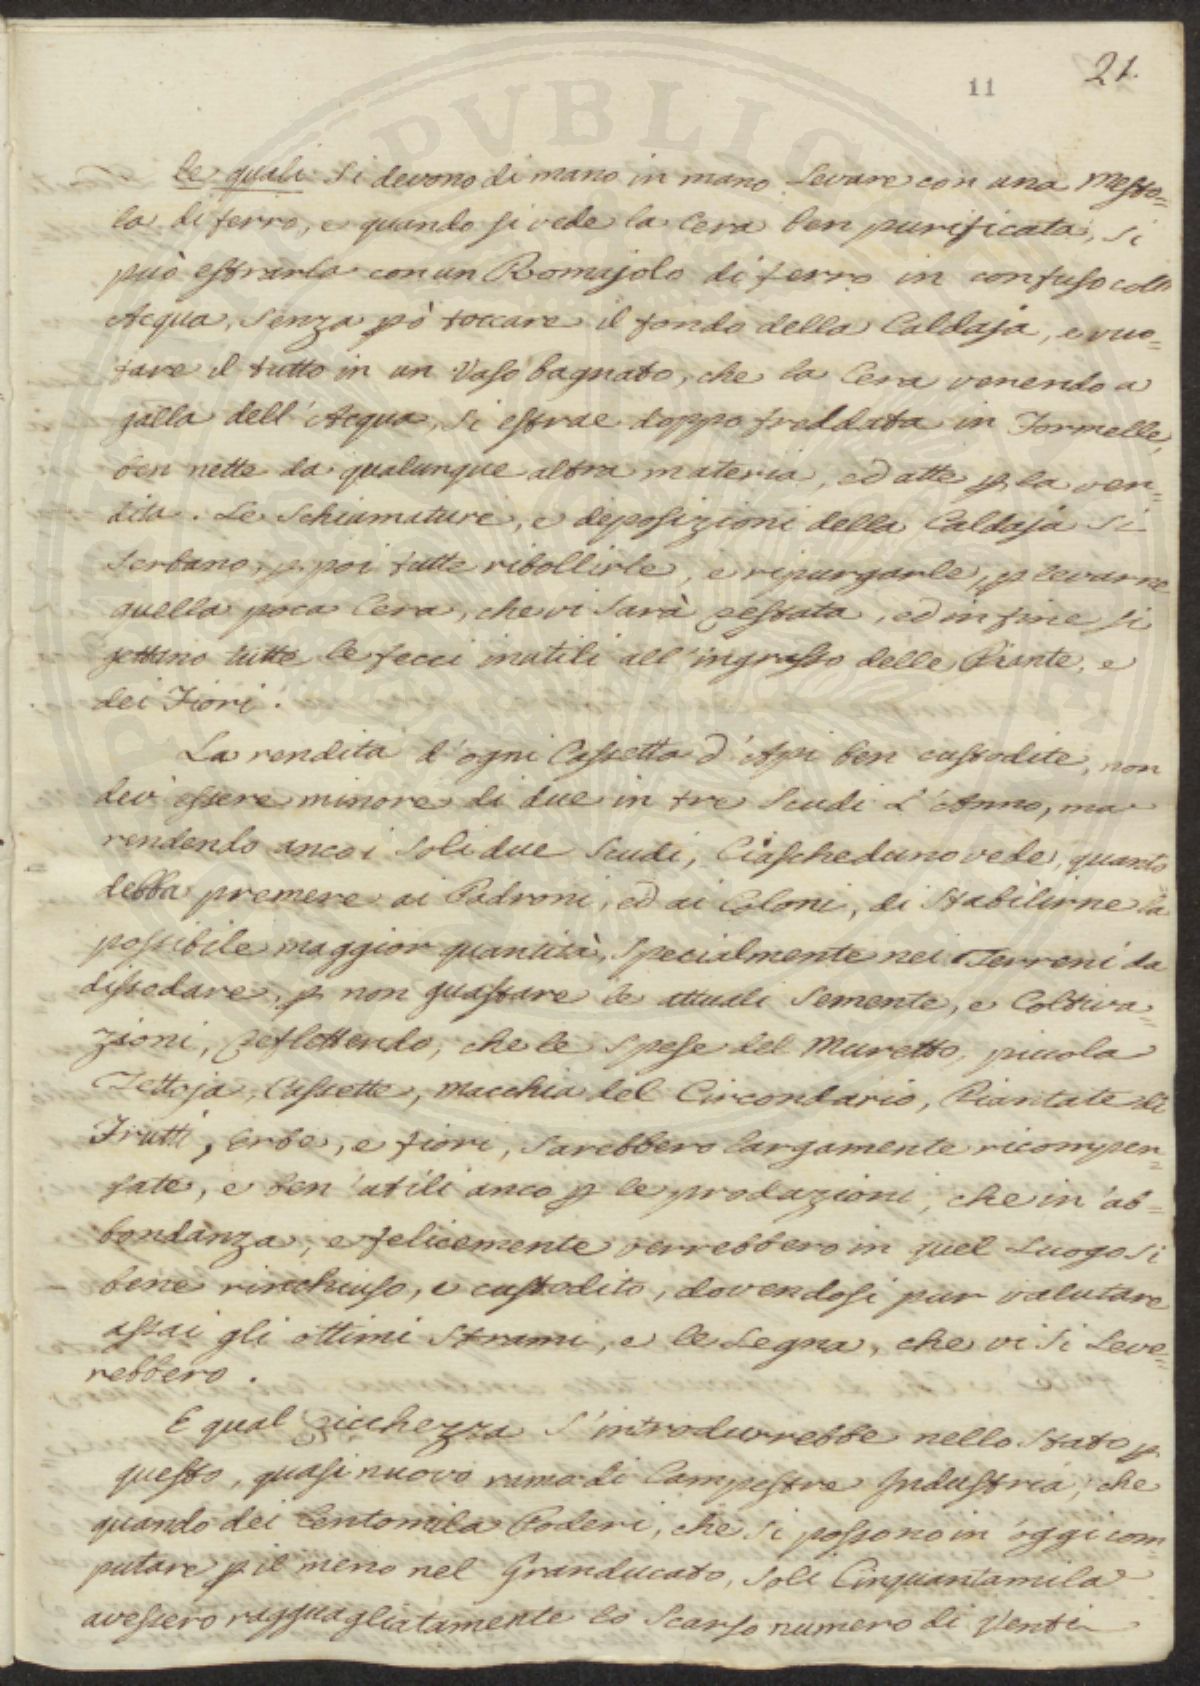 21.
11
le quali si devono di mano in mano levare con una Mesto=
la di ferro, e quando si vede la Cera ben purificata, si
può estrarla con un Romajolo di ferro in confuso coll'
Acqua, senza pò toccare il fondo della Caldaja, e vuo=
tare il tutto in un Vaso bagnato, che la Cera venendo a
galla dell'Acqua, si estrae doppo freddata in Formelle,
ben nette da qualunque altra materia, ed atte p la ven=
dita. Le Schiumature, e deposizioni della Caldaja si
serbano, p poi tutte ribollirle, e ripurgarle, p levarne
quella poca Cera, che vi sarà restata, ed in fine si
gettano tutte le fecci inutili all'ingrasso delle Piante, e
dei Fiori.
La rendita d'ogni Cassetta d'Api ben custodite, non
dev'essere minore di due in tre Scudi l'Anno, ma
rendendo anco i soli due Scudi, Ciascheduno vede, quanto
debba premere ai Padroni, ed ai Coloni, di stabilirne la
possibile maggior quantità, specialmente nei Terreni da
dissodare, p non guastare le attuali Semente, e Coltiva=
zioni, reflettendo, che le spese del Muretto, piccola
Tettoja, Cassette, Macchia del Circondario, Piantate di
Frutti, Erbe, e fiori, sarebbero largamente ricompen=
sate, e ben'utili anco p le produzioni, che in'ab=
bondanza, e felicemente verrebbero in quel Luogo si
bene rinchiuso, e custodito, dovendosi pur valutare
assai gli ottimi Strami, e le Legna, che vi si Leve=
rebbero.
E qual ricchezza s'introdurrebbe nello Stato p
questo, quasi nuovo ramo di Campestre Industria, che
quando dei Centomila Poderi, che si possono in'oggi com=
putare p il meno nel Granducato, soli Cinquantamila
avessero ragguagliatamente lo scarso numero di Venti